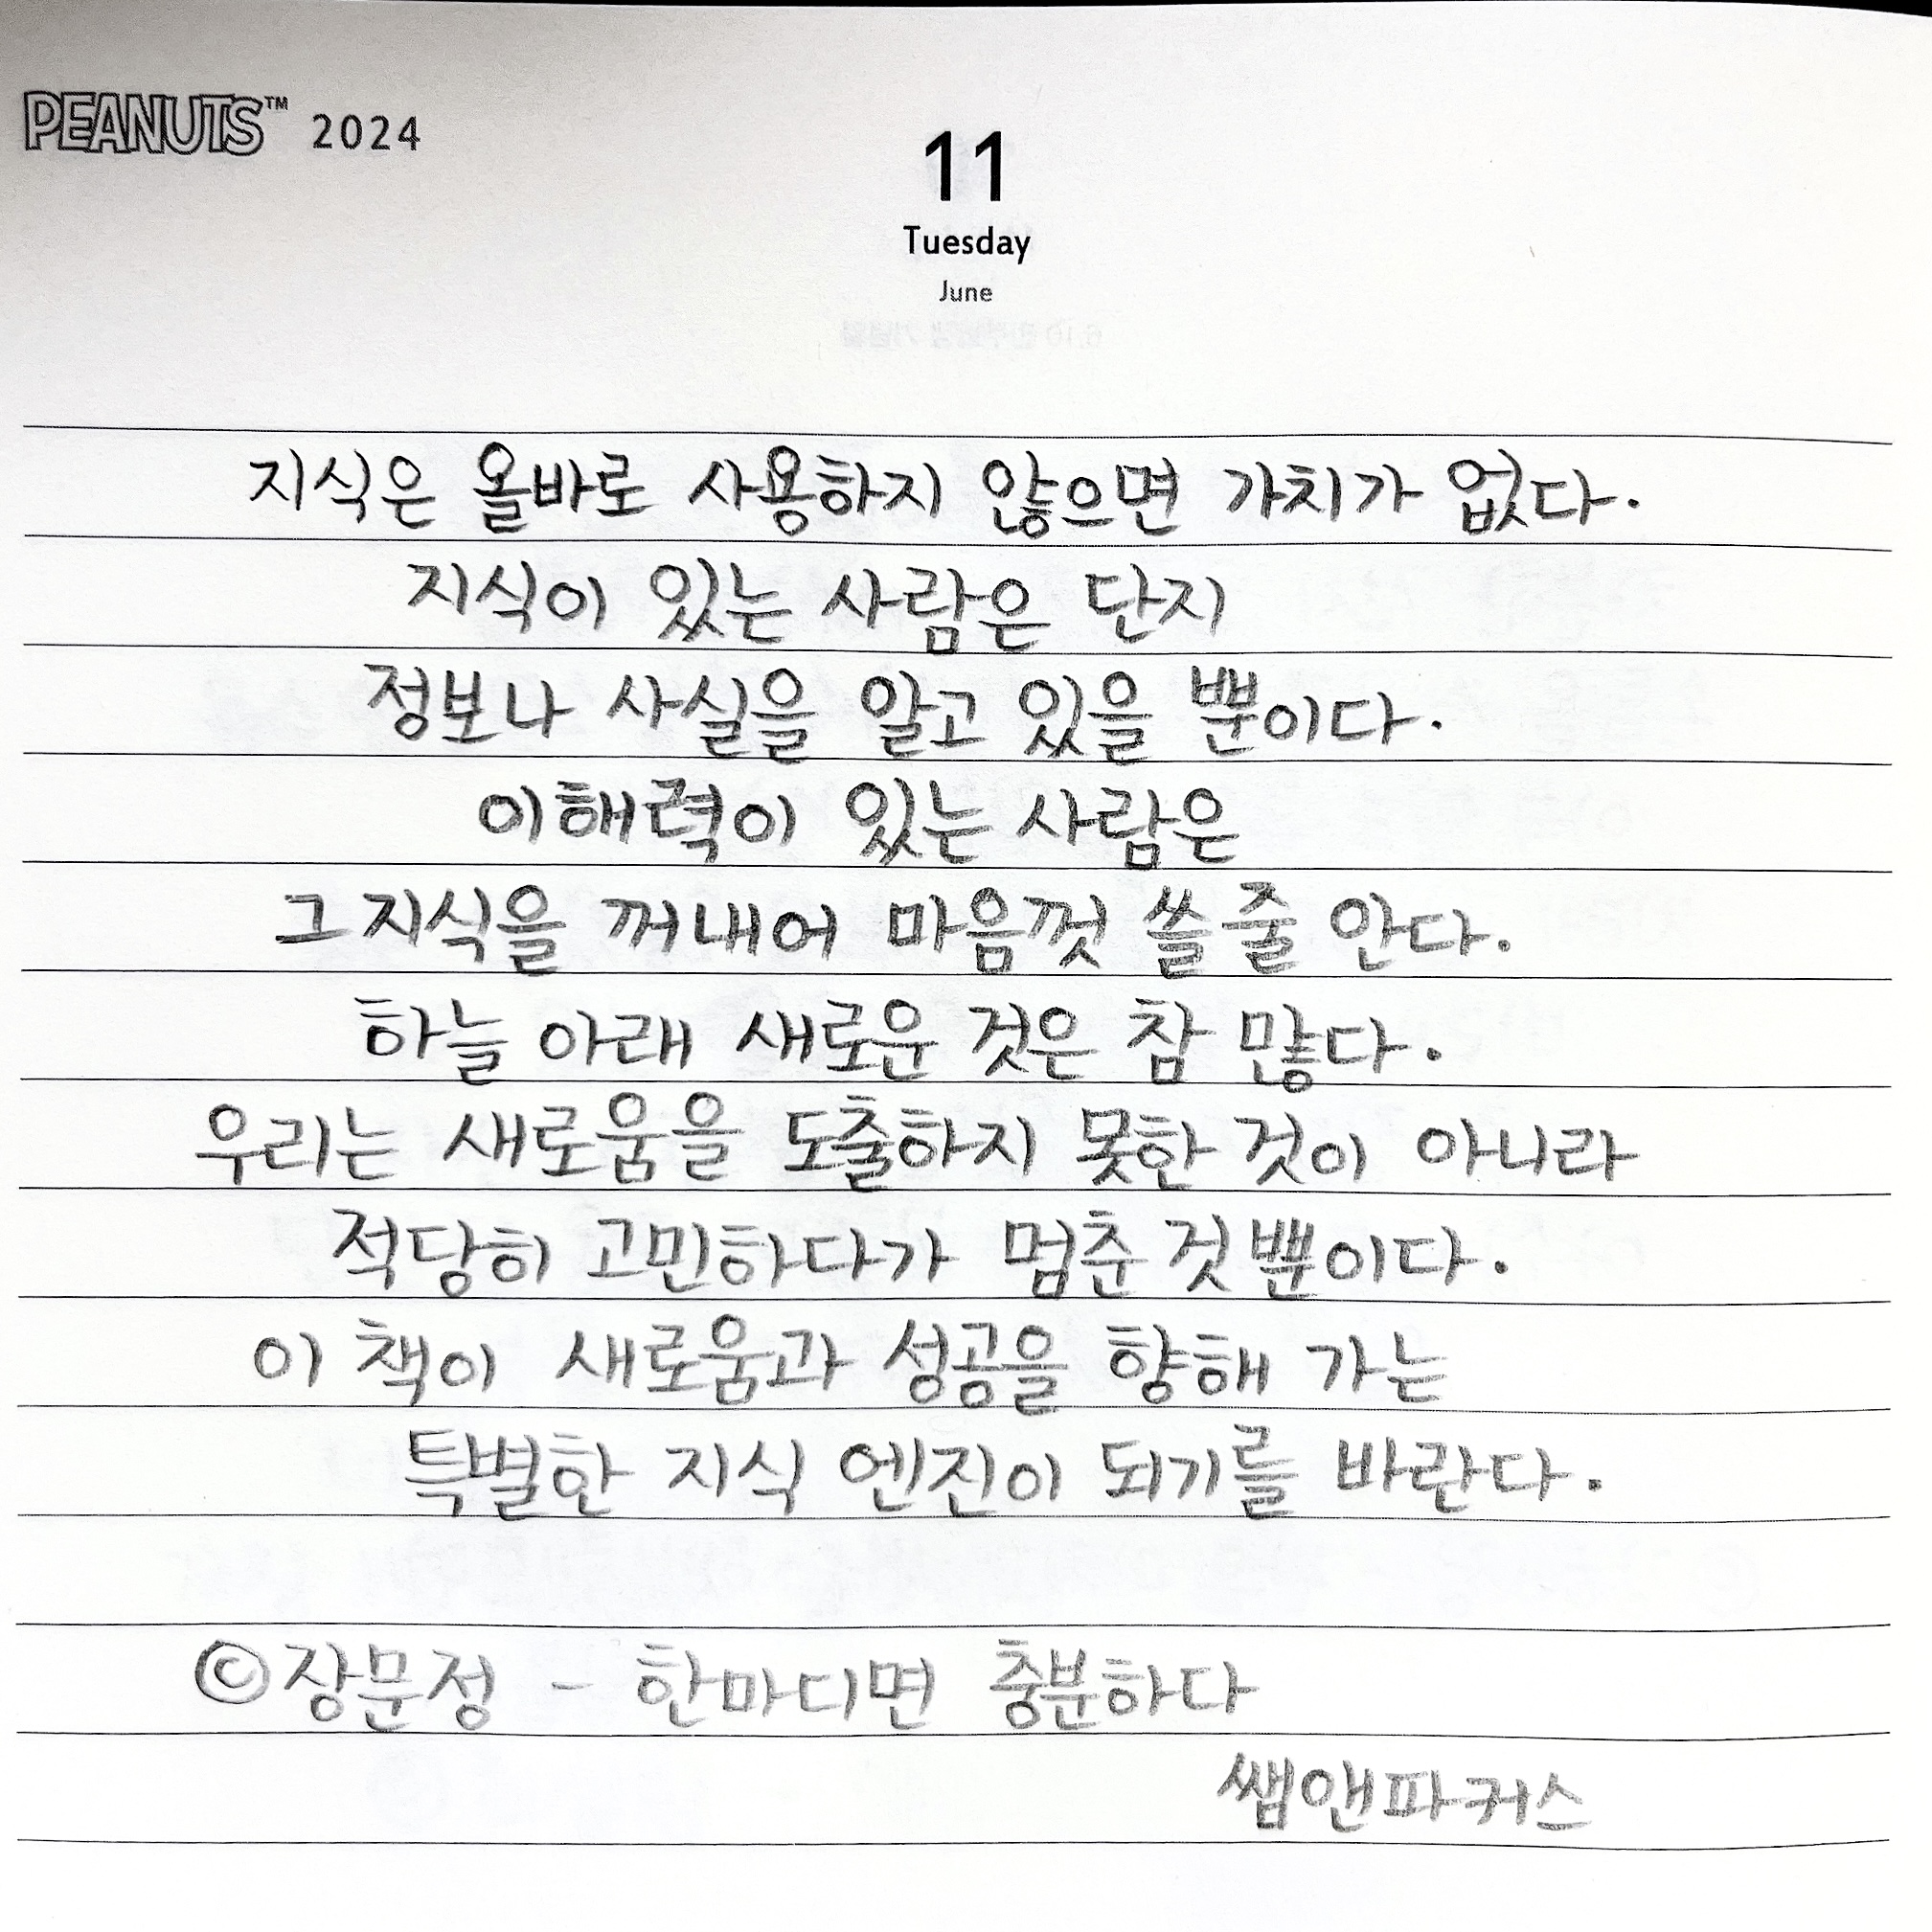 PEANUTS™ 2024
11
Tuesday
June
지식은 올바로 사용하지 않으면 가치가 없다.
지식이 있는 사람은 단지
정보나 사실을 알고 있을 뿐이다.
이해력이 있는 사람은
그 지식을 꺼내어 마음껏 쓸 줄 안다.
하늘 아래 새로운 것은 참 많다.
우리는 새로움을 도출하지 못한 것이 아니라
적당히 고민하다가 멈춘 것 뿐이다.
이 책이 새로움과 성공을 향해 가는
특별한 지식 엔진이 되기를 바란다.
©장문정 - 한마디면 충분하다
쌤앤파커스